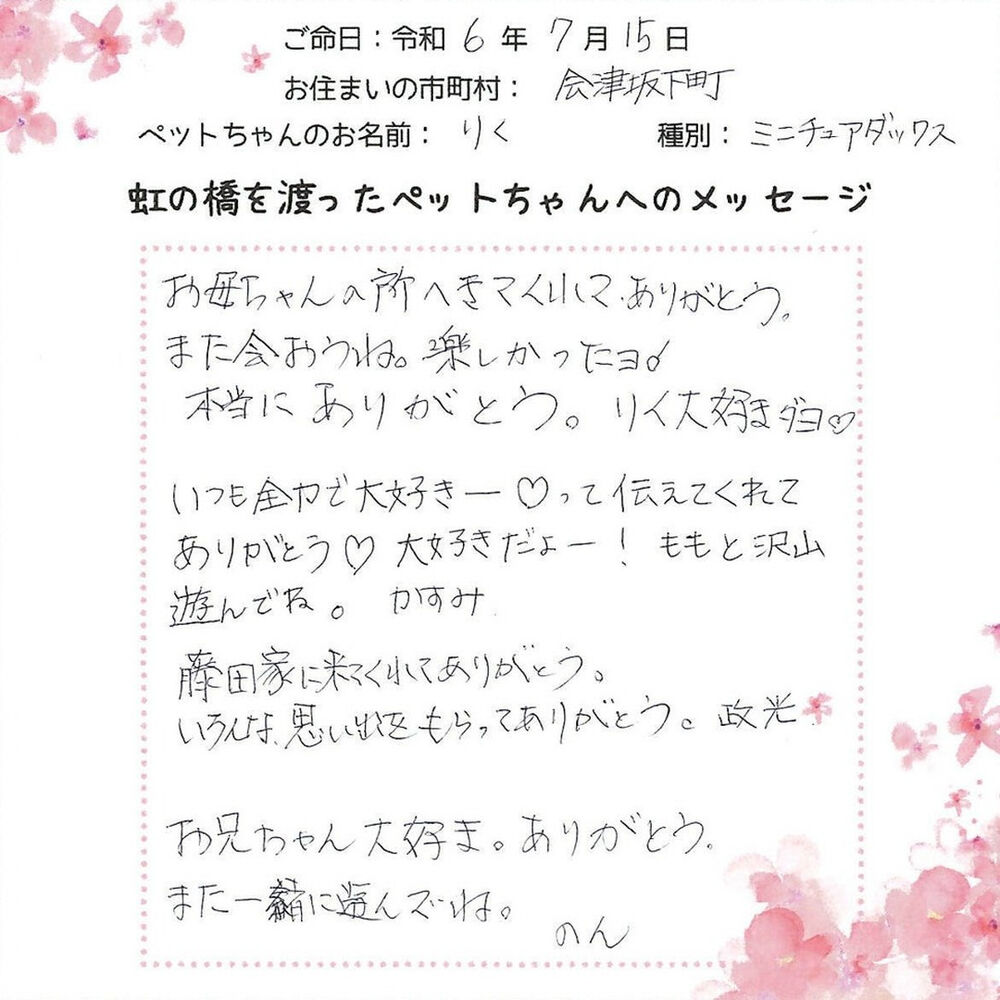 ご命日：令和 6 年 7 月 15 日
お住まいの市町村： 会津坂下町
ペットちゃんのお名前： りく 種別： ミニチュアダックス
虹の橋を渡ったペットちゃんへのメッセージ
お母ちゃんの所へきてくれて、ありがとう。
また会おうね。楽しかったヨ♂
本当に ありがとう。 りく大好きダヨ♡
いつも全力で大好きー♡って伝えてくれて
ありがとう♡ 大好きだよー！ ももと沢山
遊んでね。 かすみ
藤田家に来てくれてありがとう。
いろんな思い出をもらってありがとう。 政光
お兄ちゃん大好き。ありがとう。
また一緒に遊んでね。
のん